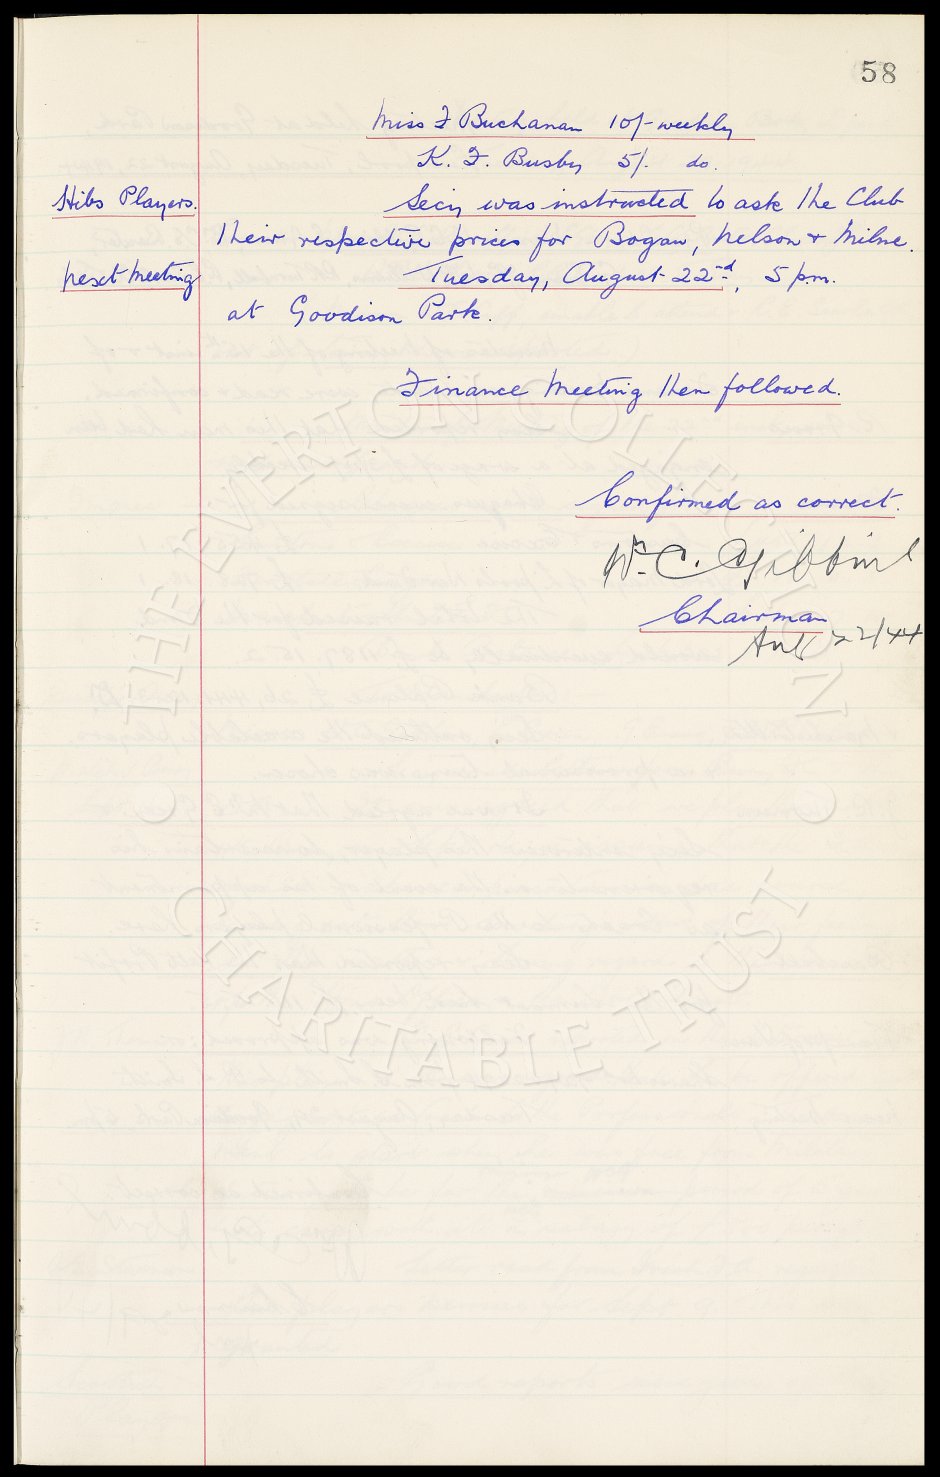 58
Miss F Buchanan 10/- weekly
K. F. Busby 5/- do.
Hibs Players. Secy was instructed to ask the Club
their respective prices for Bogan, Nelson & Milne.
Next Meeting Tuesday, August 22nd, 5 p.m.
at Goodison Park.
Finance Meeting then followed.
Confirmed as correct.
Wm. C. Gibbins
Chairman
Aug 22/44
THE EVERTON COLLECTION
CHARITABLE TRUST